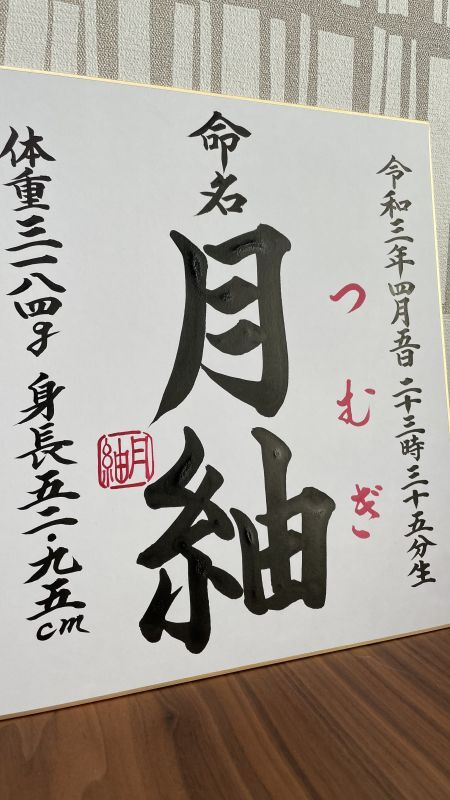 令和三年四月五日 二十三時三十五分生
つむぎ
命名
月紬
月紬
体重三一八四g 身長五二・九五cm